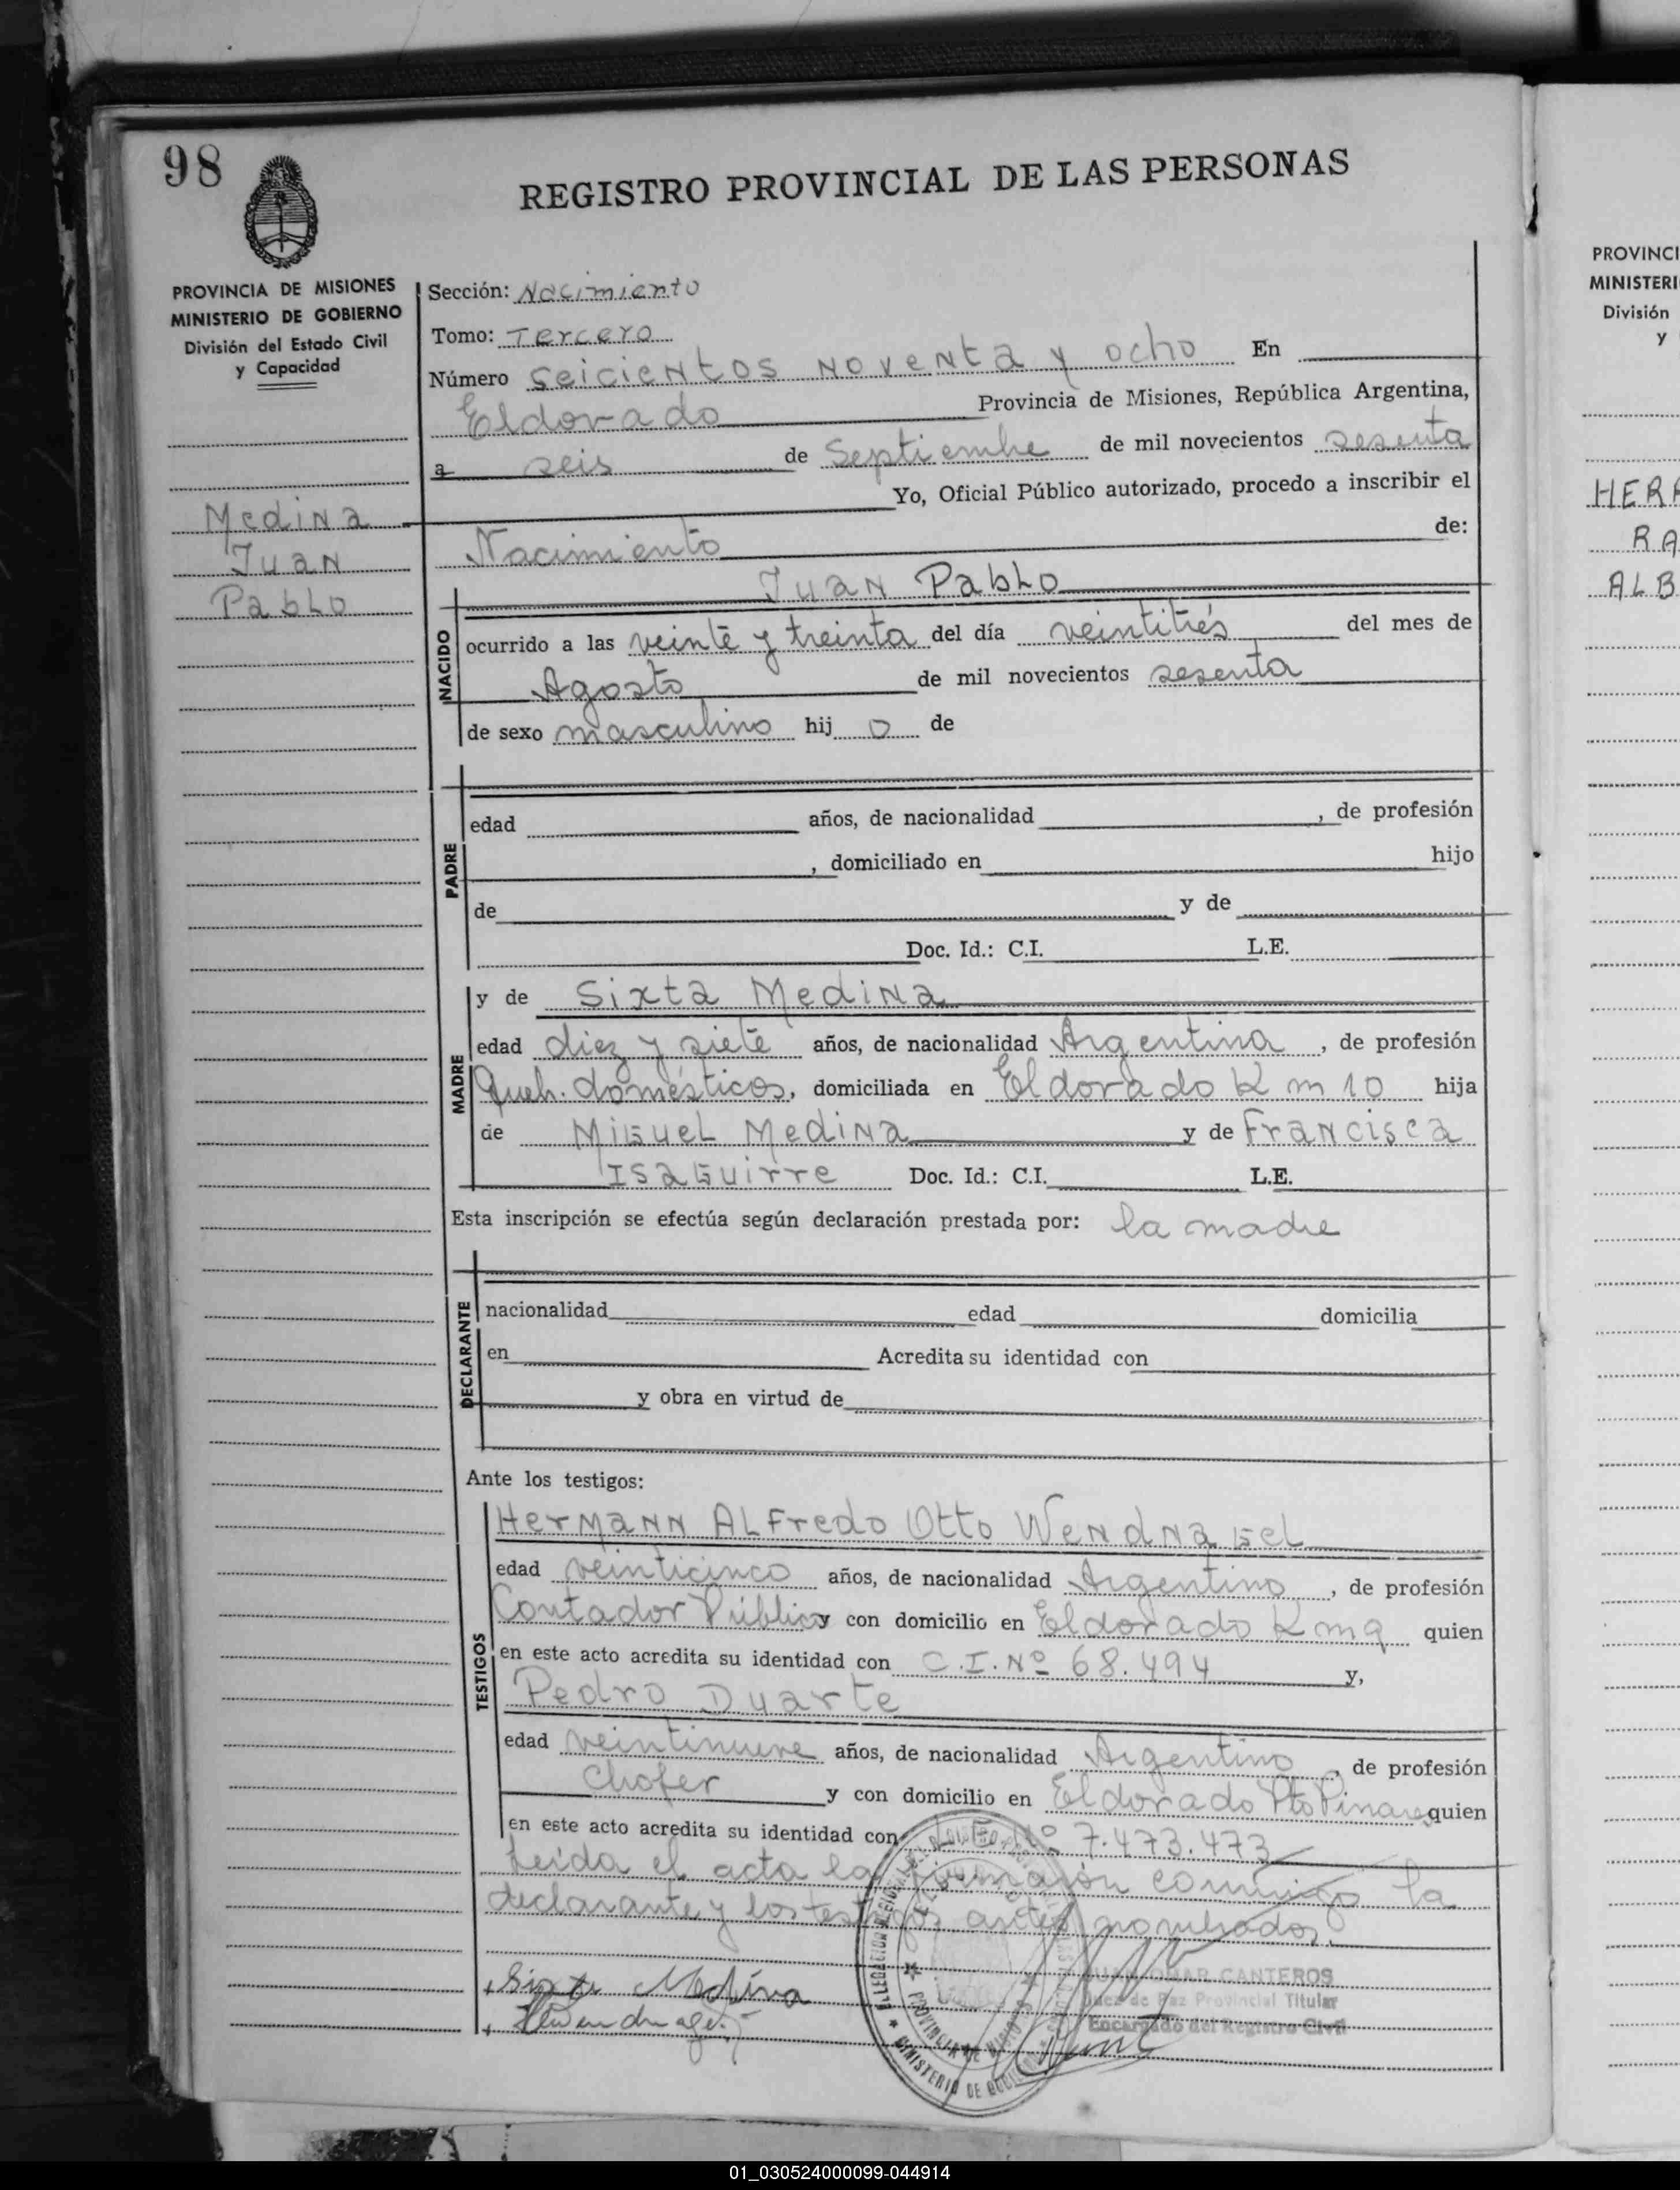 98
REGISTRO PROVINCIAL DE LAS PERSONAS
PROVINCIA DE MISIONES
MINISTERIO DE GOBIERNO
División del Estado Civil
y Capacidad
Medina
Juan
Pablo
Sección: Nacimiento
Tomo: Tercero
Número seicientos noventa y ocho En
Eldorado Provincia de Misiones, República Argentina,
a seis de Septiembre de mil novecientos sesenta
Yo, Oficial Público autorizado, procedo a inscribir el
Nacimiento de:
NACIDO
Juan Pablo
ocurrido a las veinte y treinta del día veintitrés del mes de
Agosto de mil novecientos sesenta
de sexo masculino hij o de
PADRE
edad años, de nacionalidad , de profesión
, domiciliado en hijo
de y de
Doc. Id.: C.I. L.E.
MADRE
y de Sixta Medina
edad diez y siete años, de nacionalidad Argentina, de profesión
Queh. domésticos, domiciliada en Eldorado Km 10 hija
de Miguel Medina y de Francisca
Isaguirre Doc. Id.: C.I. L.E.
Esta inscripción se efectúa según declaración prestada por: la madre
DECLARANTE
nacionalidad edad domicilia
en Acredita su identidad con
y obra en virtud de
Ante los testigos:
TESTIGOS
Hermann Alfredo Otto Wendnagel
edad veinticinco años, de nacionalidad Argentino, de profesión
Contador Público y con domicilio en Eldorado Km 9 quien
en este acto acredita su identidad con C.I. Nº 68.494 y,
Pedro Duarte
edad veintinueve años, de nacionalidad Argentino, de profesión
chofer y con domicilio en Eldorado Pto Pinares quien
en este acto acredita su identidad con Nº 7.473.473
Leida el acta la firmaron conmigo la
declarante y los testigos antes nombrados.
Sixta Medina
JUAN OMAR CANTEROS
Juez de Paz Provincial Titular
Encargado del Registro Civil
PROVINCIA DE MISIONES
MINISTERIO DE GOBIERNO
PROVINCI
MINISTERI
División
y
HERR
RA
ALB
01_030524000099-044914